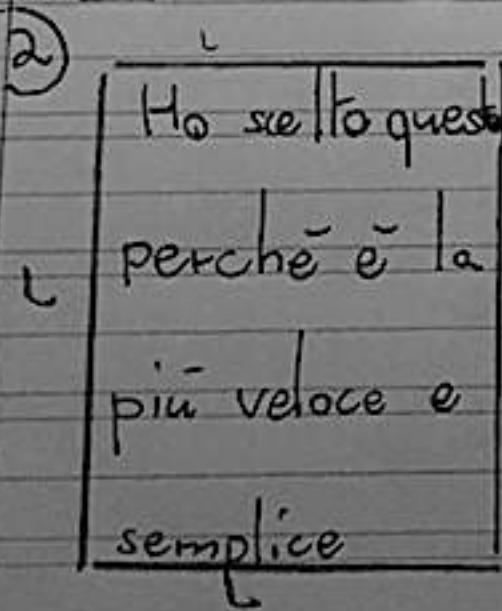 2
L
Ho scelto questo
perchē ē la
L
piū veloce e
semplice
L